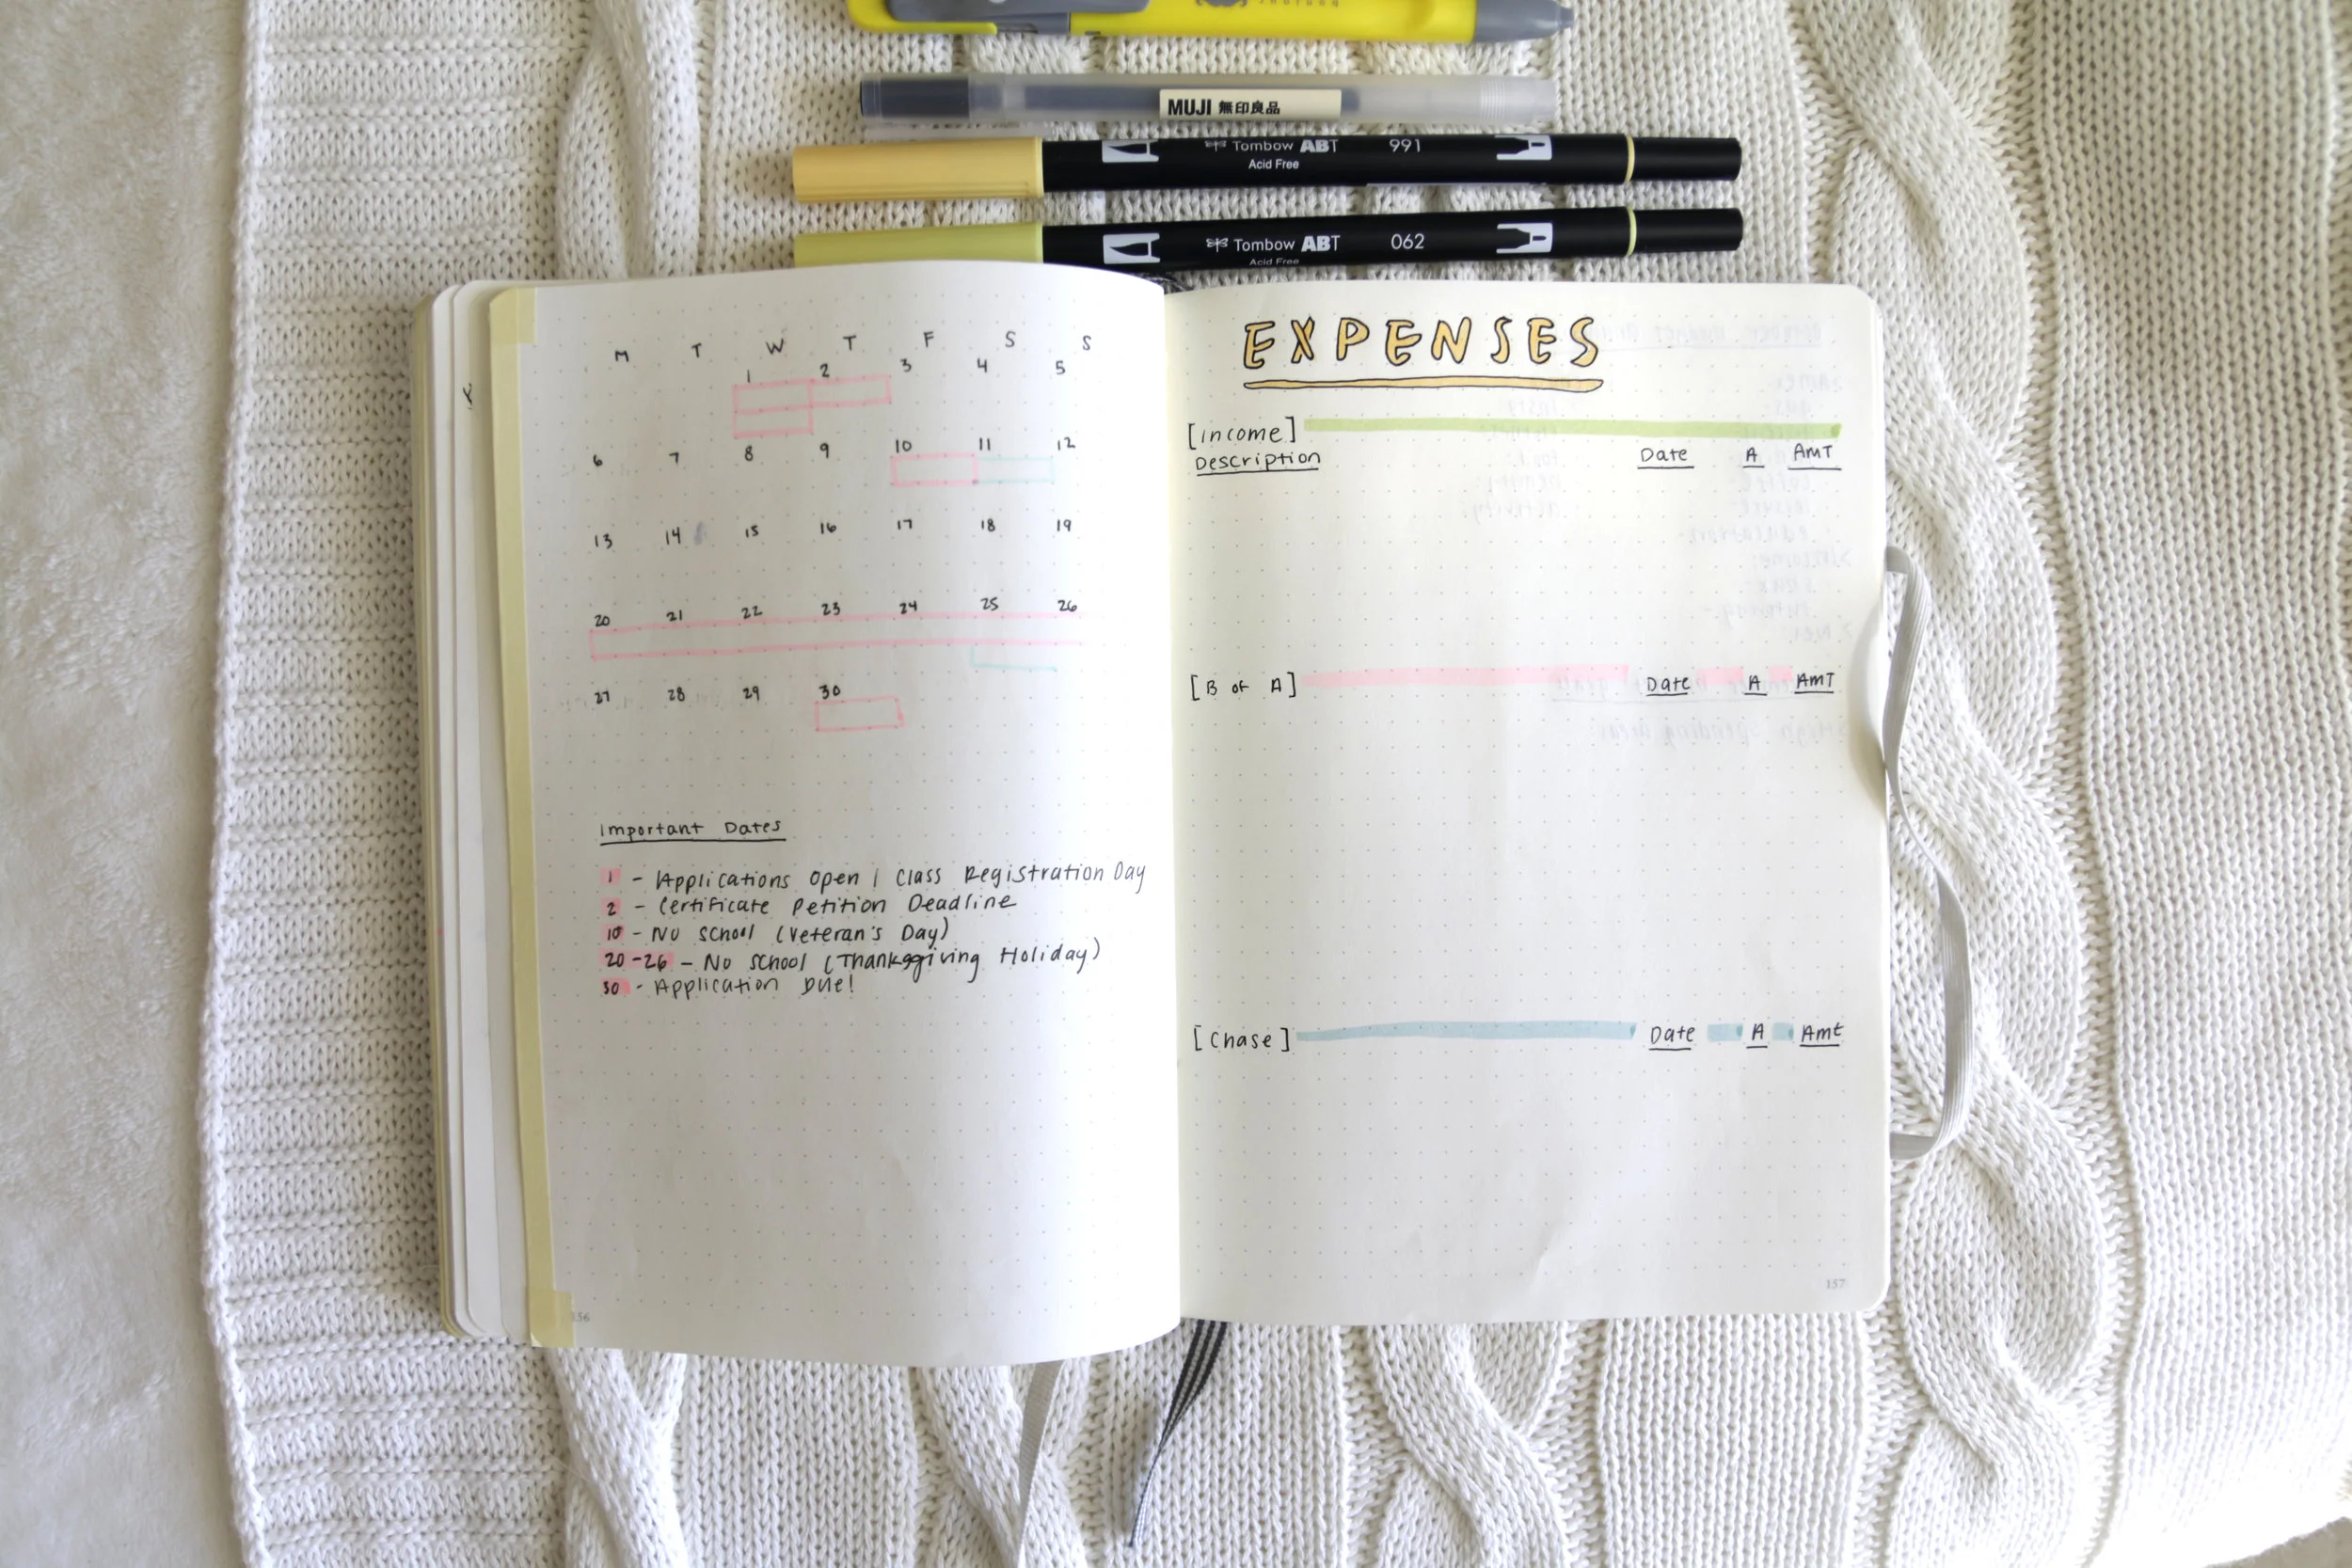 MUJI 無印良品
Tombow ABT 991
Acid Free
Tombow ABT 062
Acid Free
M T W T F S S
1 2 3 4 5
6 7 8 9 10 11 12
13 14 15 16 17 18 19
20 21 22 23 24 25 26
27 28 29 30
Important Dates
1 - Applications Open / Class Registration Day
2 - Certificate Petition Deadline
10 - No School (Veteran's Day)
20-26 - No School (Thanksgiving Holiday)
30 - Application Due!
156
EXPENSES
[Income]
Description Date A AMT
[B of A] Date A AMT
[Chase] Date A Amt
157